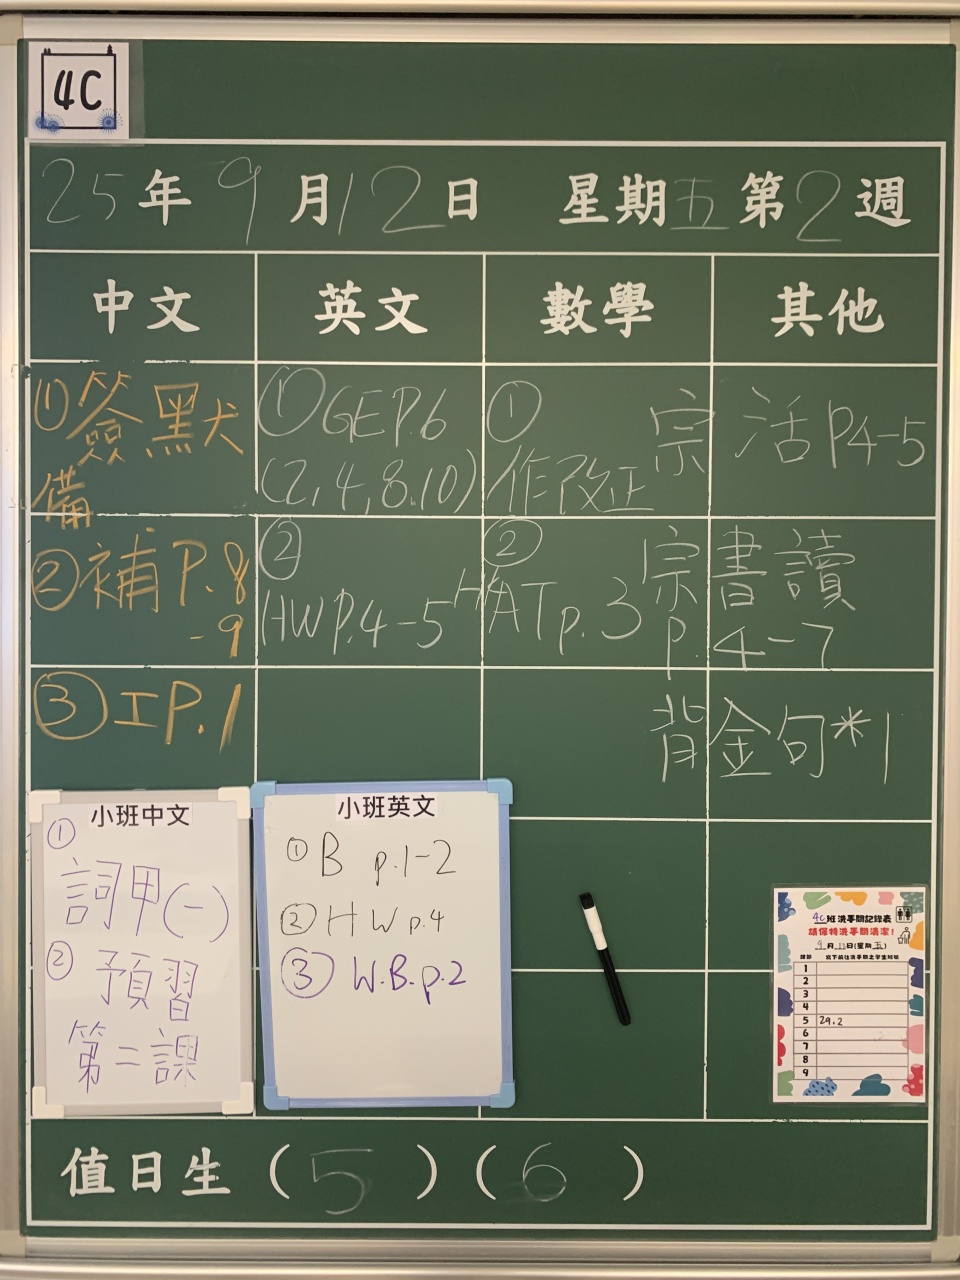 4C
25年9月12日 星期五第2週
中文 英文 數學 其他
①簽默
備
②補P.8
-9
③工P.1
①GEP.6
(2,4,8.10)
②
HWP.4-5
①
作改正
②
AT p.3
宗 活P4-5
宗書讀
p.4-7
背金句*1
小班中文
①
詞甲(一)
②預習
第二課
小班英文
①B p.1-2
②HW p.4
③W.B.p.2
4C班洗手間記錄表
請保持洗手間清潔!
9月12日(星期五)
課節 寫下前往洗手間之學生班號
1
2
3
4
5 29,2
6
7
8
9
值日生(5)(6)